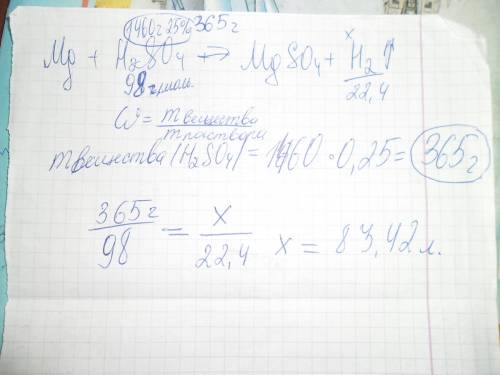 1460г 25% 365г
Mg + H₂SO₄ → MgSO₄ + H₂↑
x
98 г/моль
22,4
ω = m вещества / m раствора
m вещества (H₂SO₄) = 1460 · 0,25 = 365г
365г / 98 = x / 22,4 x = 83,42 л.